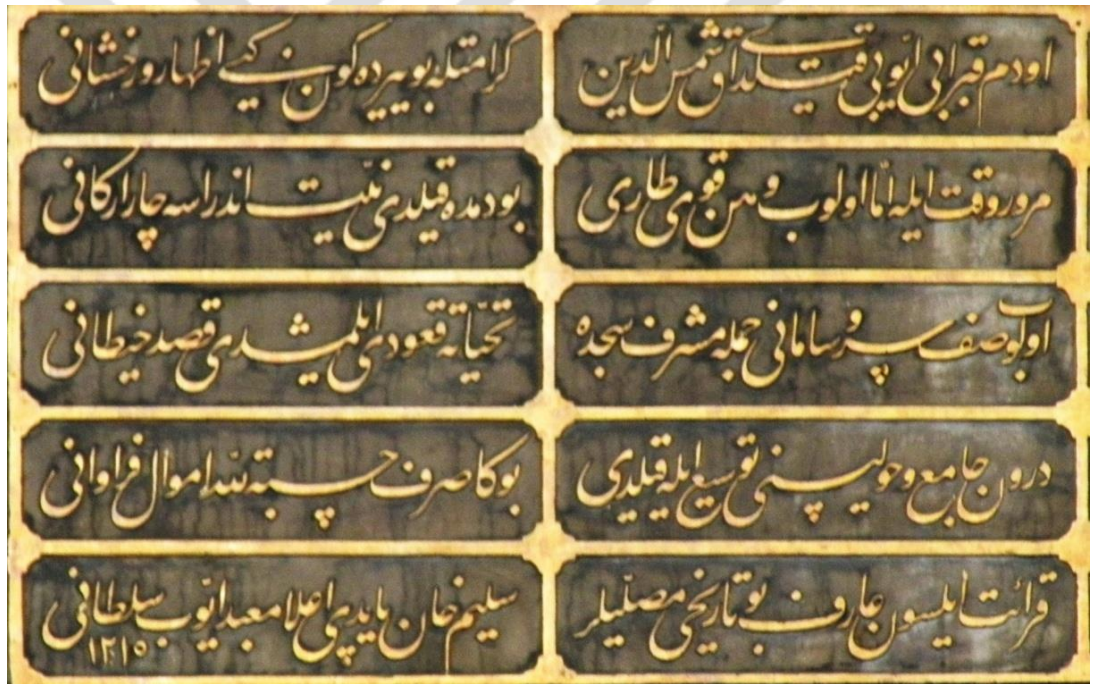 اودم قبر ابی ایوبی قیلدی آق شمس الدین
كرامتله بو یرده كون كبی اظهار و رخشانی
مرور وقت ایله اما اولوب وهن قوی طاری
بو دمده قیلدی نیت اندراسه چار اركانی
اولوب وصف سر و سامانی جمله مشرف سجده
تحیاته قعودی ایلمشدی قصد حیطانی
درون جامع و حولیسنی توسیع ایله قیلدی
بوكا صرف حسبة لله اموال فراوانی
قرائت ایلسون عارف بو تاریخی مصلیلر
سلیم خان یاپدی اعلا معبد ایوب سلطانی
۱۲۱۵